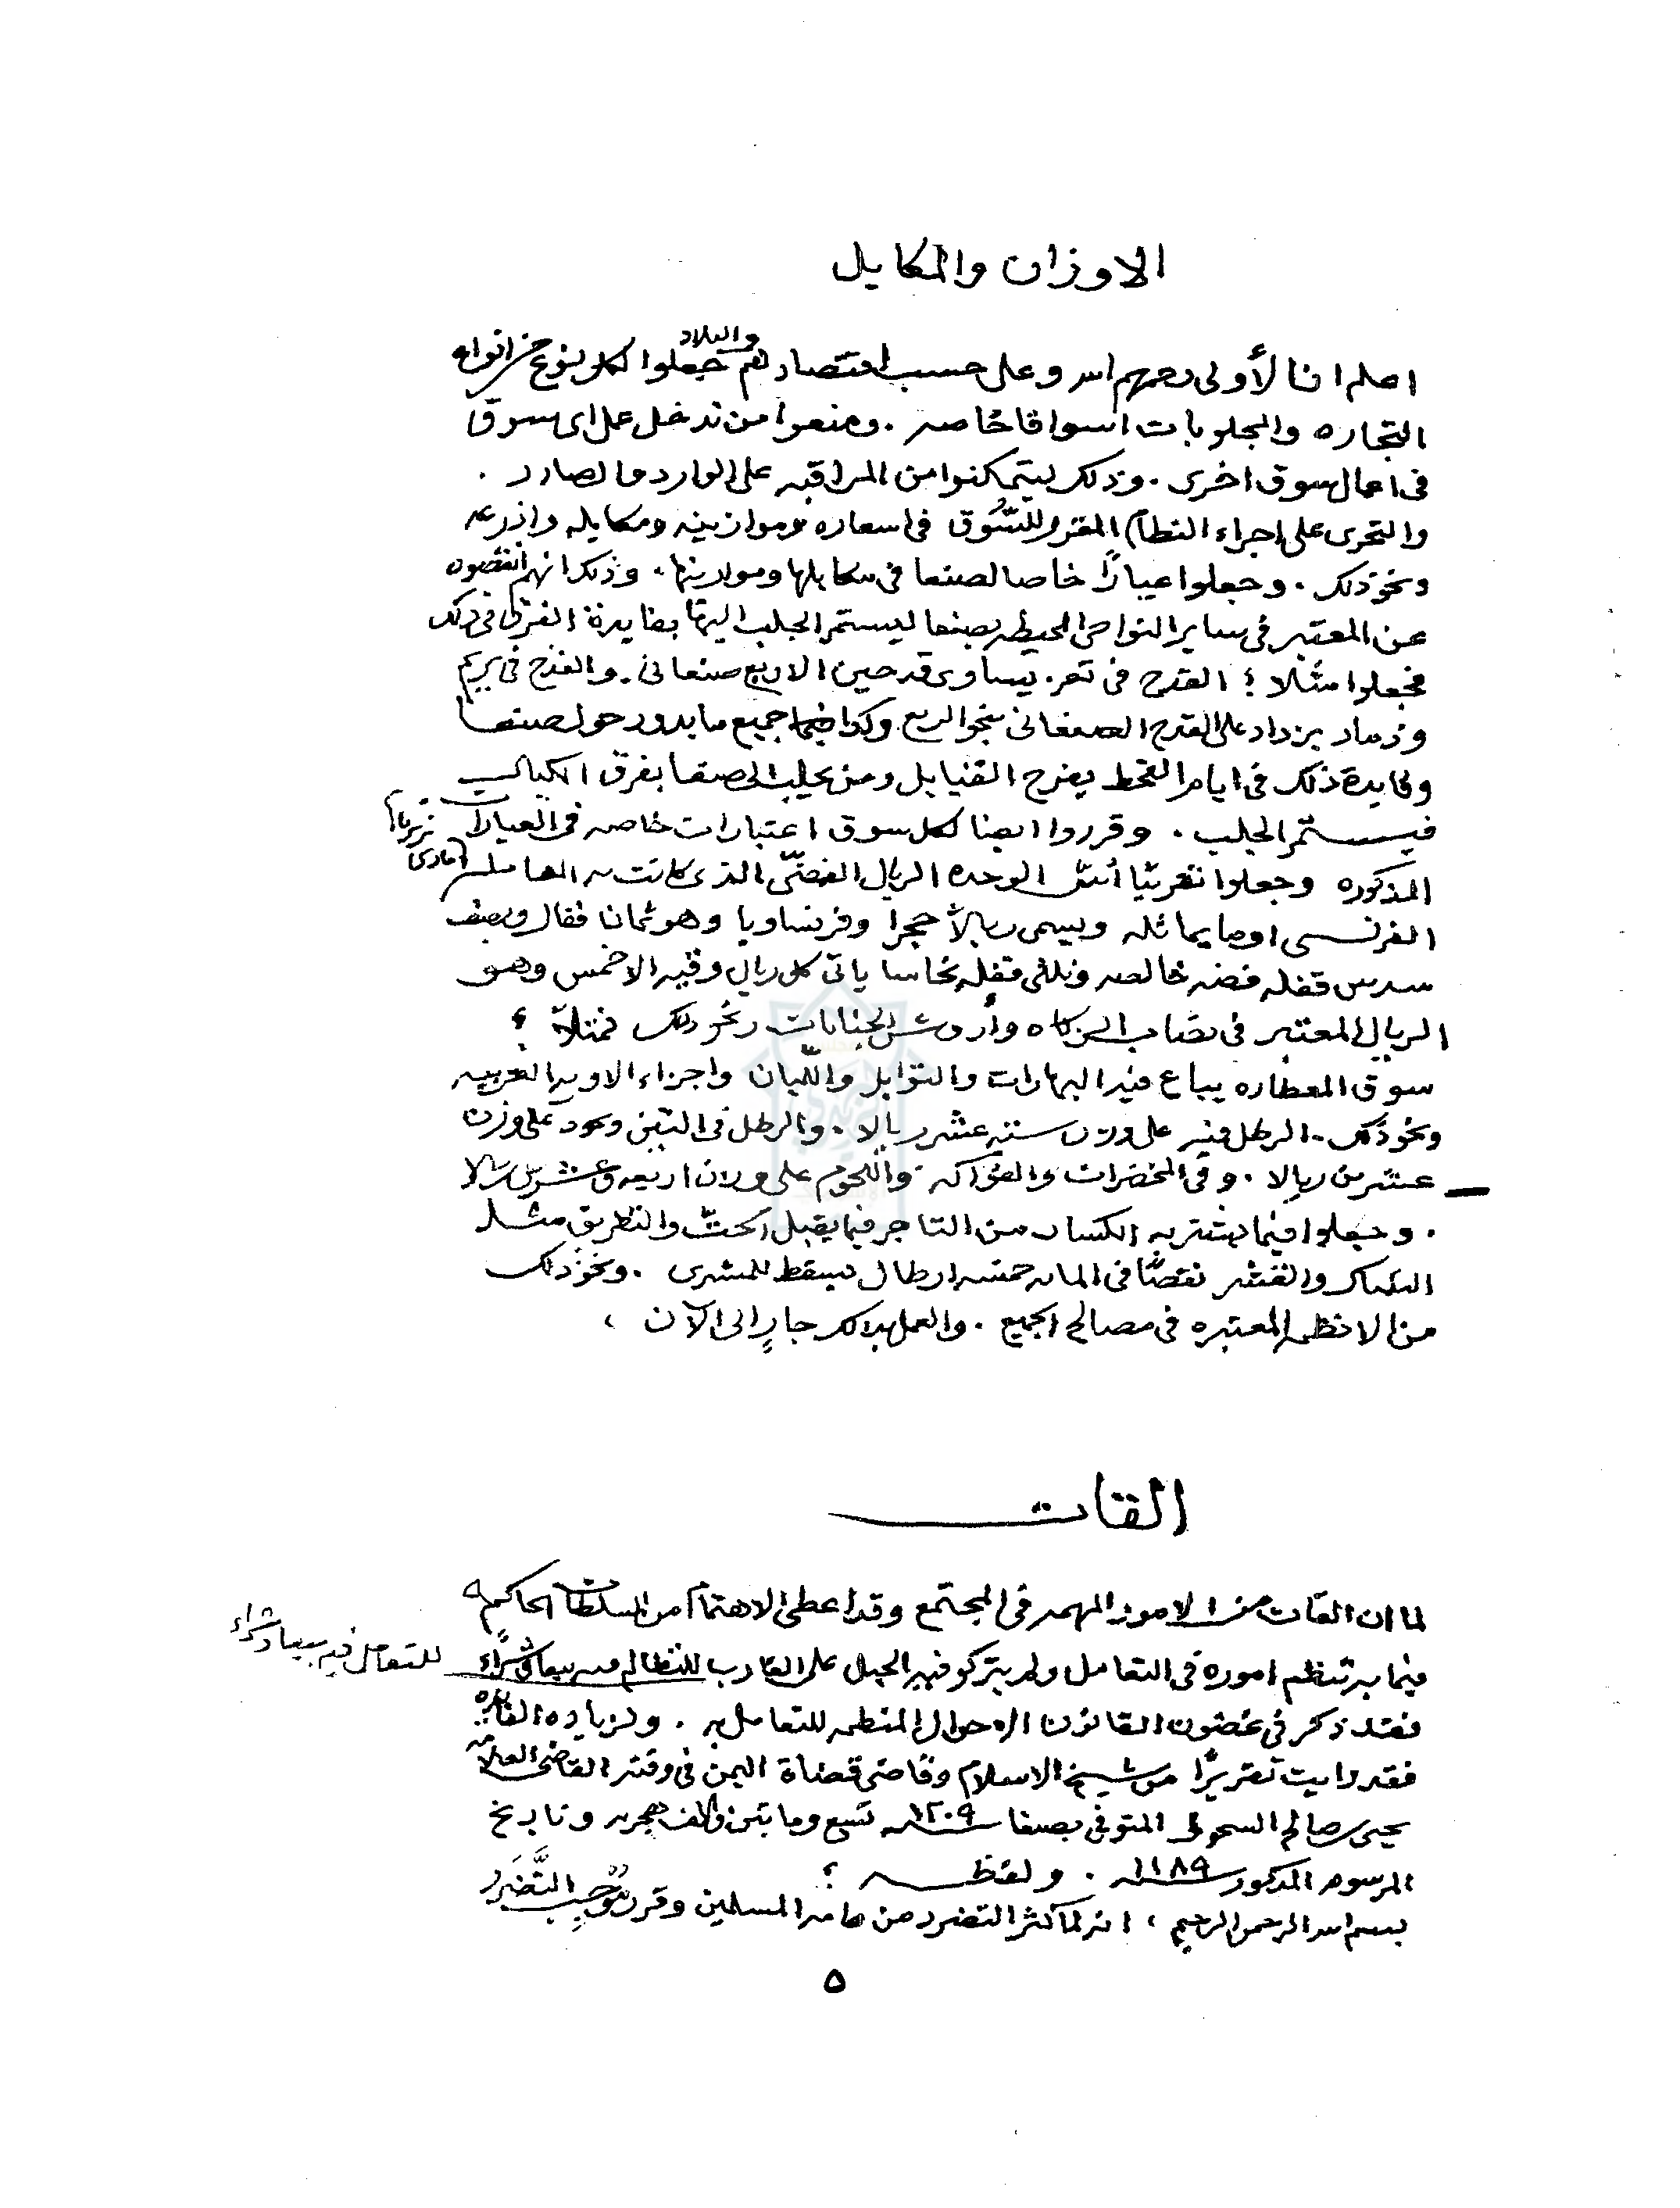 الاوزان والمكايل
اعلم ان الأولى رحمهم الله وعلى حسب اقتصادهم والبلاد جعلوا لكل نوع من انواع
التجاره والمجلوبات اسواقا خاصه . ومنعوا من تدخل عمل اى سوق
فى اعمال سوق اخرى . وذلك ليتمكنوا من المراقبه على الوارد والصادر .
والتحرى على إجراء النظام المقرر للسُّوق فى اسعاره وموازينه ومكايله واذرعه
ونحو ذلك . وجعلوا عيارًا خاصا لصنعا فى مكايلها وموازينها . وذلك انهم انقصوه
عن المعتبر فى ساير النواحى المحيطه بصنعا ليستمر الجلب اليها بفايدة الفرق فى ذلك
فجعلوا مثلا ؛ القدح فى تعز يساوى قدحين الا ربع صنعانى . والقدح فى يريم
وذمار يزداد على القدح الصنعانى بنحو الربع وكذا جميع ما يدور حول صنعا
وفايدة ذلك فى ايام القحط يفرح القبايل ومن يجلب الى صنعا بفرق الكيل
فيستمر الجلب . وقرروا ايضا لكل سوق اعتبارات خاصه فى العيارات
المذكوره وجعلوا تقريبًا أسّ الوحده الريال الفضّى الذى كانت به المعامله
الفرنسى او ما يماثله ويسمى ريالاً حجرا وفرنساويا وهو ثمان قفال ونصف
سدس قفله فضه خالصه وثلثى قفله نحاسا ياتى كل ريال وقيه الا خمس وهو
الريال المعتبر فى نصاب الزكاه وأروش الجنايات ونحو ذلك فمثلاً ؛
سوق العطاره يباع فيه البهارات والتوابل واللّبان واجزاء الادويه العربيه
ونحو ذلك . الرطل فيه على وزن سته عشر ريالا . والرطل فى التبن ونحوه على وزن
عشرين ريالا . وفى الخضرات والفواكه واللحوم على وزن اربعه وعشرين ريالا
. وجعلوا فيما يشتريه الكسار من التاجر فيما يقبل الحتّ والتطريق مثل
السكر والقشر نقصًا فى المايه خمسه ارطال تسقط للمشترى . ونحو ذلك
من الانظمه المعتبره فى مصالح الجميع . والعمل بذلك جارٍ إلى الآن ،
القات
لما ان القات من الامور المهمه فى المجتمع وقد اعطى الاهتمام من السلطات الحاكمه
فيما به تنظم اموره فى التعامل ولم يتركو فيه الحبل على الغارب للتعامل فيه بيعا وشراء
فقد ذكر فى غضون القانون الاحوال المنظمه للتعامل به . ولزياده الفايده
فقد رايت تقريرًا من شيخ الاسلام وقاضى قضاة اليمن فى وقته القاضى العلامه
يحيى صالح السحولى المتوفى بصنعا سنه ١٢٠٩ تسع ومايتين والف هجريه وتاريخ
المرسوم المذكور سنه ١١٨٩ . ولفظه ؛
بسم الله الرحمن الرحيم ، انه لما كثر التضرر من عامه المسلمين وقرر مُوجِب التَّضَرر
٥